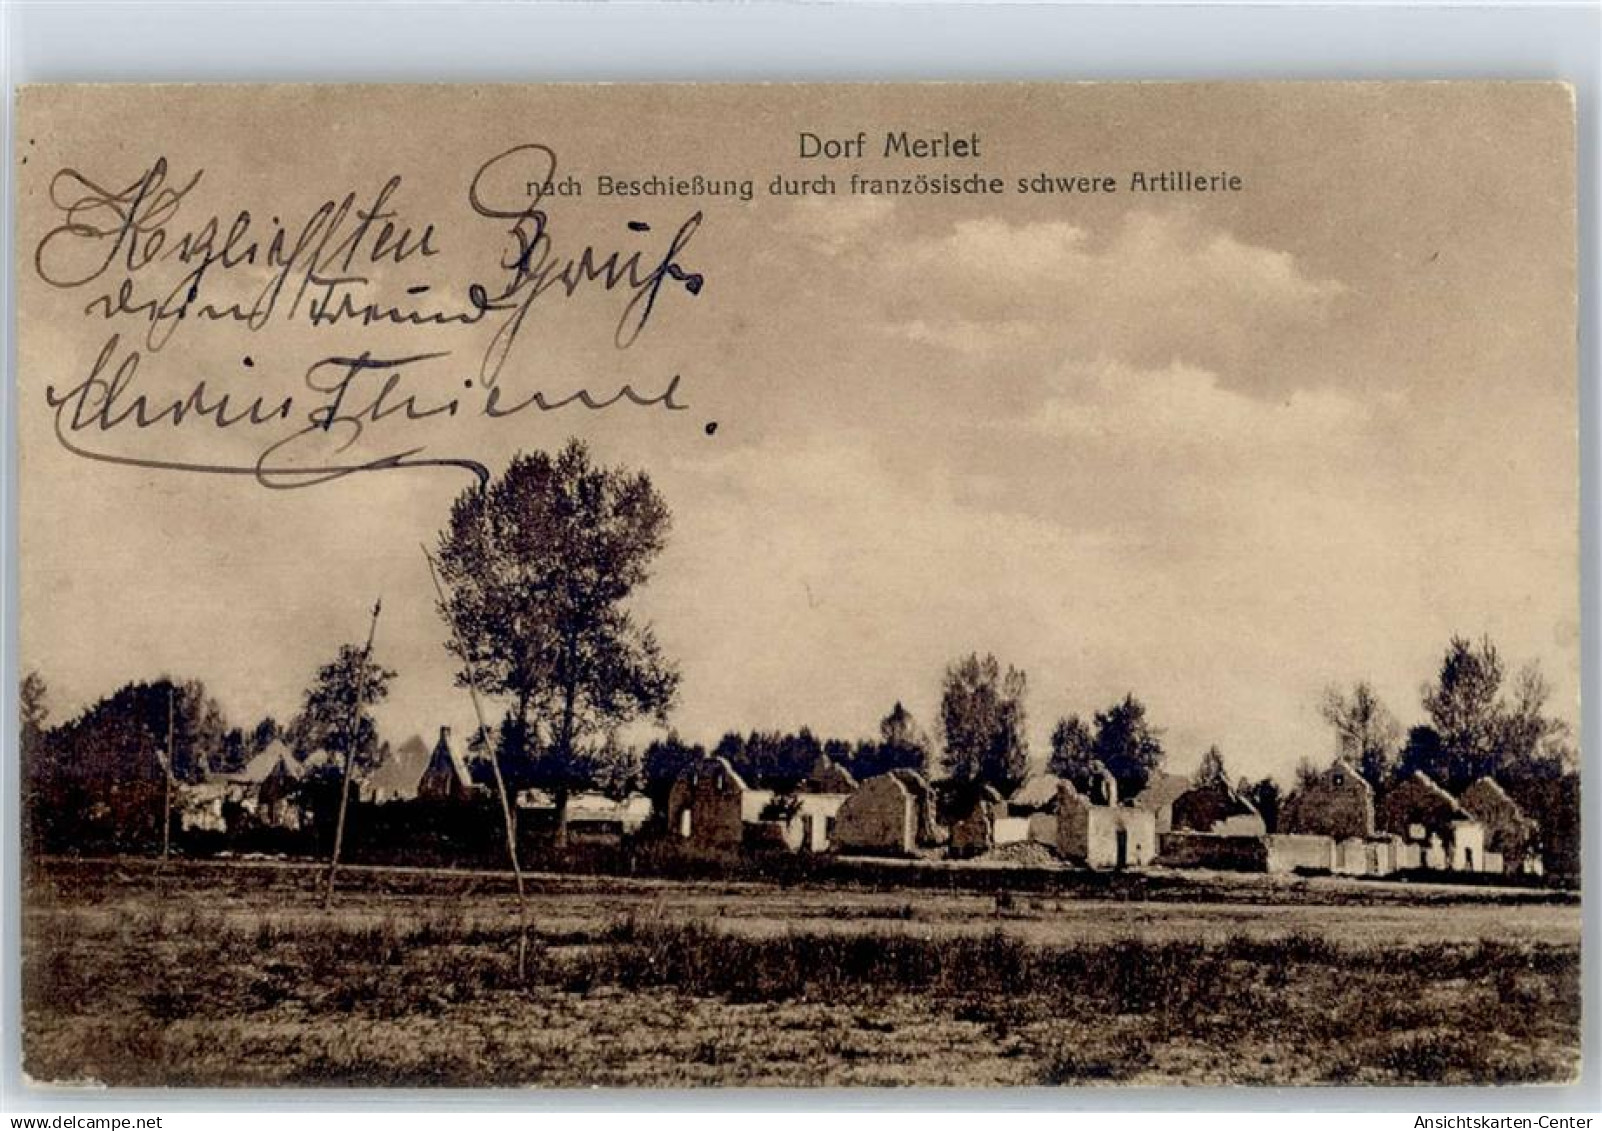 Dorf Merlet
nach Beschießung durch französische schwere Artillerie
Herzlichsten Gruß
dein Freund
Erwin Thieme.
delcampe.net
Ansichtskarten-Center